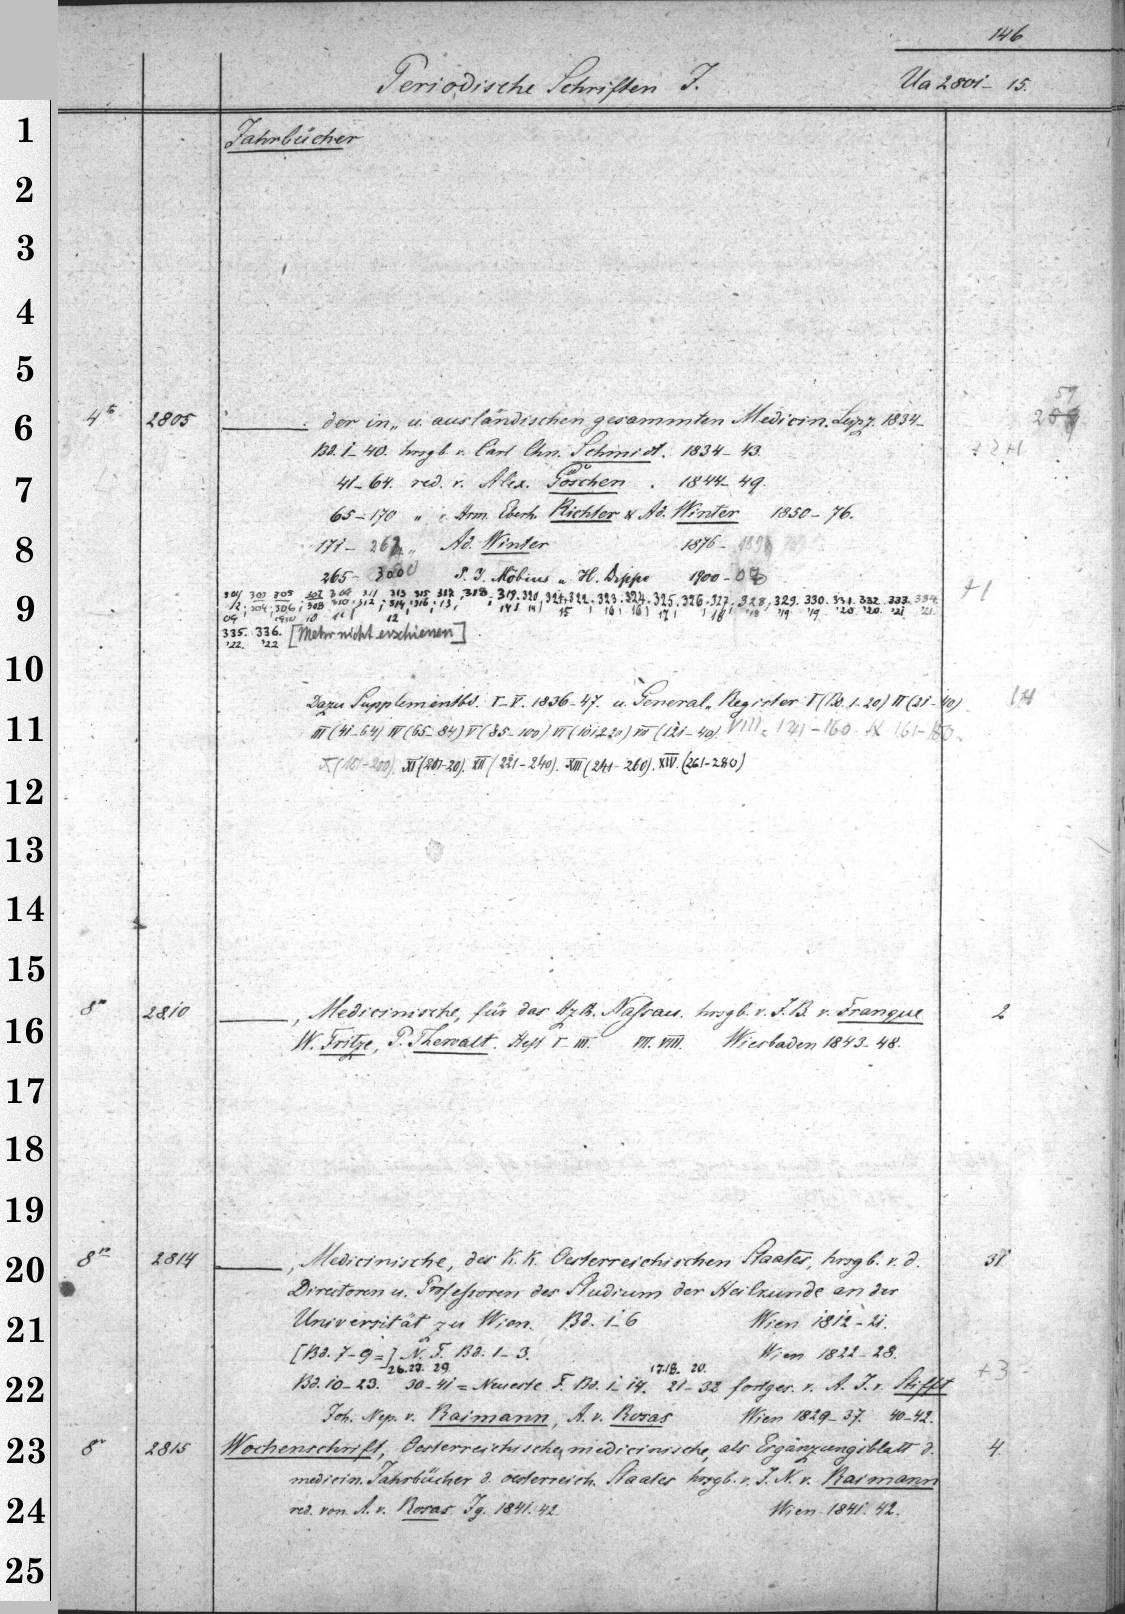 146
Periodische Schriften I. Ua 2801-15.
1 Jahrbücher
2
3
4
5
59
6 4to 2805 der in- u. ausländischen gesammten Medicin. Leipz. 1834-
Bd. 1-40. hrsgb. v. Carl Chn. Schmidt. 1834-43.
7 41-64. red. v. Alex. Göschen. 1844-49.
65-170 " v. Hrm. Eberh. Richter & Ad. Winter 1850-76.
8 171- " Ad. Winter 1876-
265- 300 P. J. Möbius u. H. Dippe 1900- +1
9 301 303 305 307 309 311 313 315 317, 318. 319. 320, 321, 322. 323. 324. 325. 326. 327. 328, 329. 330. 331. 332. 333. 334.
335. 336. [Mehr nicht erschienen]
'22. '22
10
Dazu Supplementbd. I-V. 1836-47. u. General-Register I (Bd. 1-20) II (21-40)
11 III (41-64) IV (65-84) V (85-100) VI (101-120) VII (121-40). VIII. 141-160. IX 161-180.
X (181-200). XI (201-20). XII (221-240). XIII (241-260). XIV. (261-280)
12
13
14
15
8vo 2810 , Medicinische, für das Hzth. Nassau. hrsgb. v. J. B. v. Franque 2
16 W. Fritze, P. Thewalt. Heft I-III. VII. VIII. Wiesbaden 1843-48.
17
18
19
20 8vo 2814 , Medicinische, des K. K. Oesterreichischen Staates, hrsgb. v. d.
Directoren u. Professoren des Studium der Heilkunde an der
21 Universität zu Wien. Bd. 1-6 Wien 1812-21.
[Bd. 7-9=] N. F. Bd. 1-3. Wien 1822-28.
26. 27. 29. 17. 18. 20. +3
22 Bd. 10-23. 30-41 = Neueste F. Bd. 1-14. 21-32 fortges. v. A. J. v. Stifft
Joh. Nep. v. Raimann, A. v. Rosas Wien 1829-37. 40-42.
23 8vo 2815 Wochenschrift, Oesterreichische, medicinische, als Ergänzungsblatt d. 4.
medicin. Jahrbücher d. oesterreich. Staates hrsgb. v. J. N. v. Raimann
24 red. von A. v. Rosas. Jg. 1841. 42. Wien 1841. 42.
25